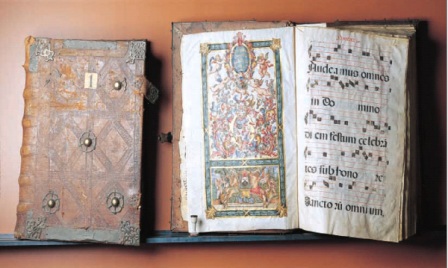 Audea mus omnes
in Do mino
di em festum celebrā
tes sub hono re
Sancto rū omnium,